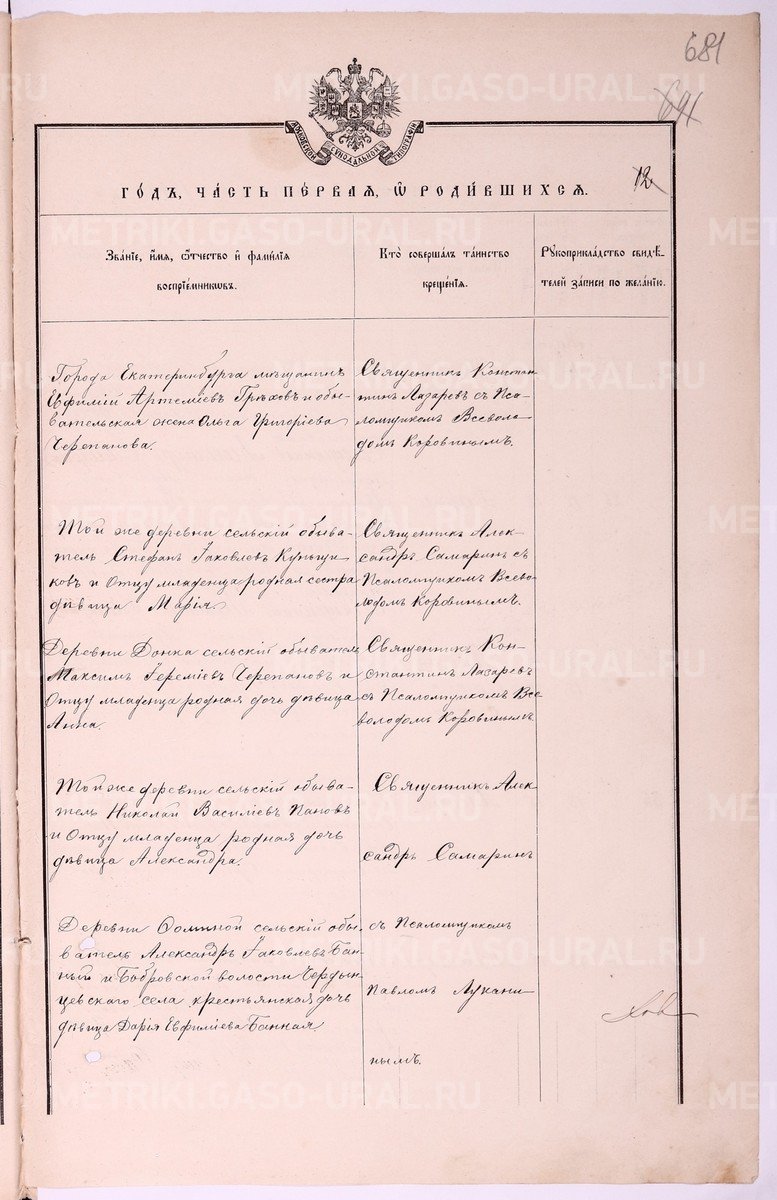 681
691
МОСКОВСКОЙ СѴНОДАЛЬНОЙ ТИПОГРАФІИ
12
ГОДЪ, ЧАСТЬ ПЕРВАЯ, Ѡ РОДИВШИХСЯ.
Званіе, имя, ѻтчество и фамилія
воспріемникѡвъ.
Кто совершалъ таинство
крещенія.
Рукоприкладство свидѣ-
телей записи по желанію.
Города Екатеринбурга мѣщанинъ
Ефимій Артеміевъ Грѣховъ и обы-
вательская жена Ольга Григоріева
Черепанова.
Священникъ Констан-
тинъ Лазаревъ съ Пса-
ломщикомъ Всевола-
домъ Коровинымъ.
Той же деревни сельскій обыва-
тель Стефанъ Іаковлевъ Куньщи-
ковъ и Отцу младенца родная сестра
дѣвица Марія.
Священникъ Алек-
сандръ Самаринъ съ
Псаломщикомъ Всево-
лодомъ Коровинымъ.
Деревни Донка сельскій обыватель
Максимъ Іереміевъ Черепановъ и
Отцу младенца родная дочь дѣвица
Анна.
Священникъ Кон-
стантинъ Лазаревъ
съ Псаломщикомъ Все-
володомъ Коровинымъ
Той же деревни сельскій обыва-
тель Николай Василіевъ Пановъ
и Отцу младенца родная дочь
дѣвица Александра.
Священникъ Алек
сандръ Самаринъ
Деревни Фоминой сельскій обы-
ватель Александръ Іаковлевъ Бан-
ный и Бобровской волости Чердын-
цевскаго села крестьянская дочь
дѣвица Дарія Евфиміева Банная.
съ Псаломщикомъ
Павломъ Лукани-
нымъ.
METRIKI.GASO-URAL.RU